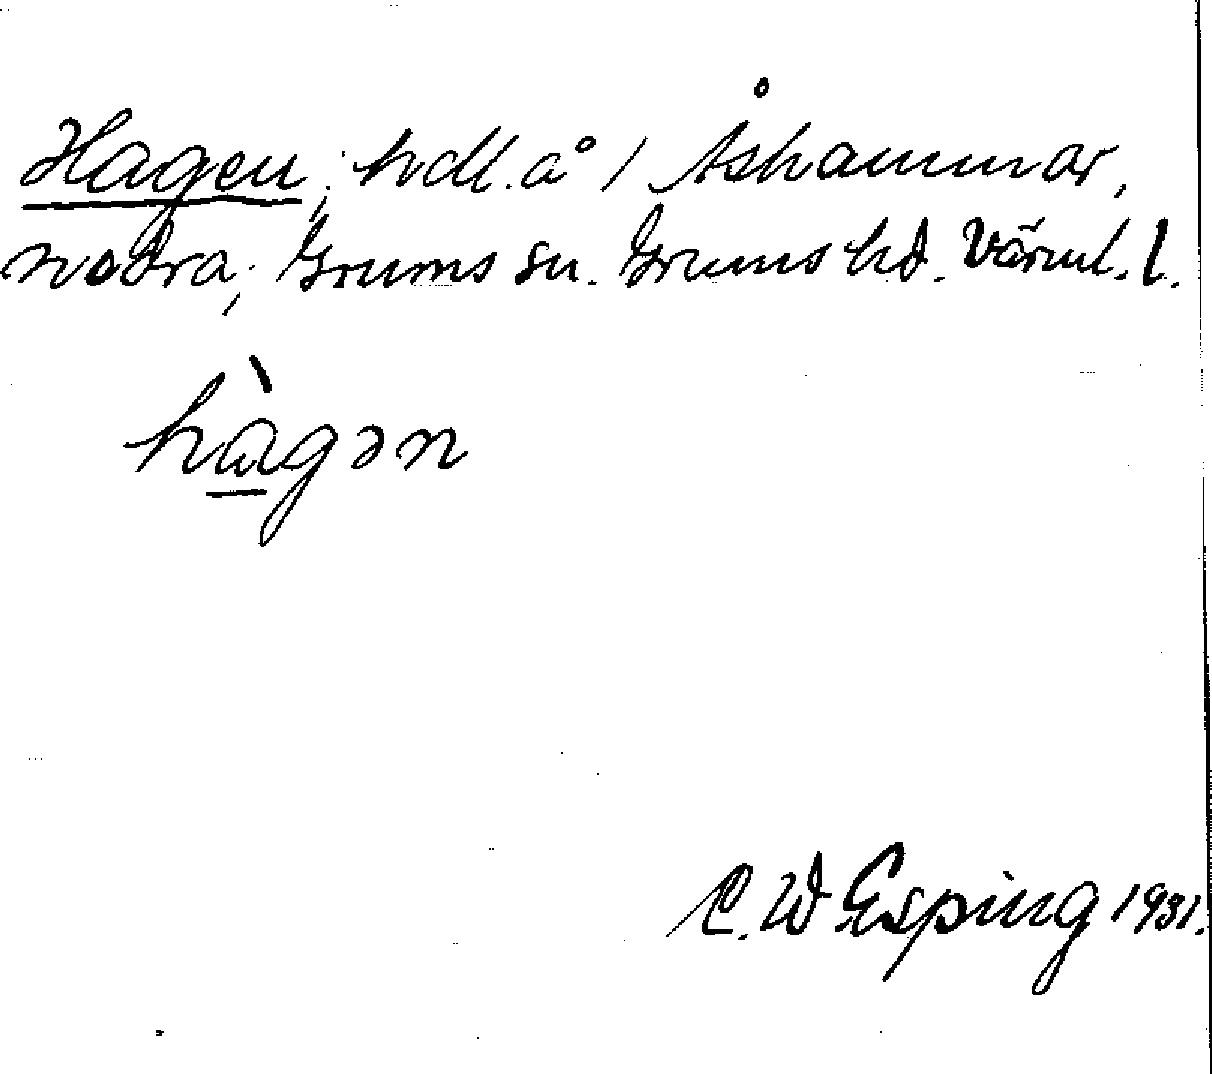 Hagen; hdl. å 1 Åshammar,
nodra; Grums sn. Grums hd. Värml. l.
hàgən
C. W Esping 1931.